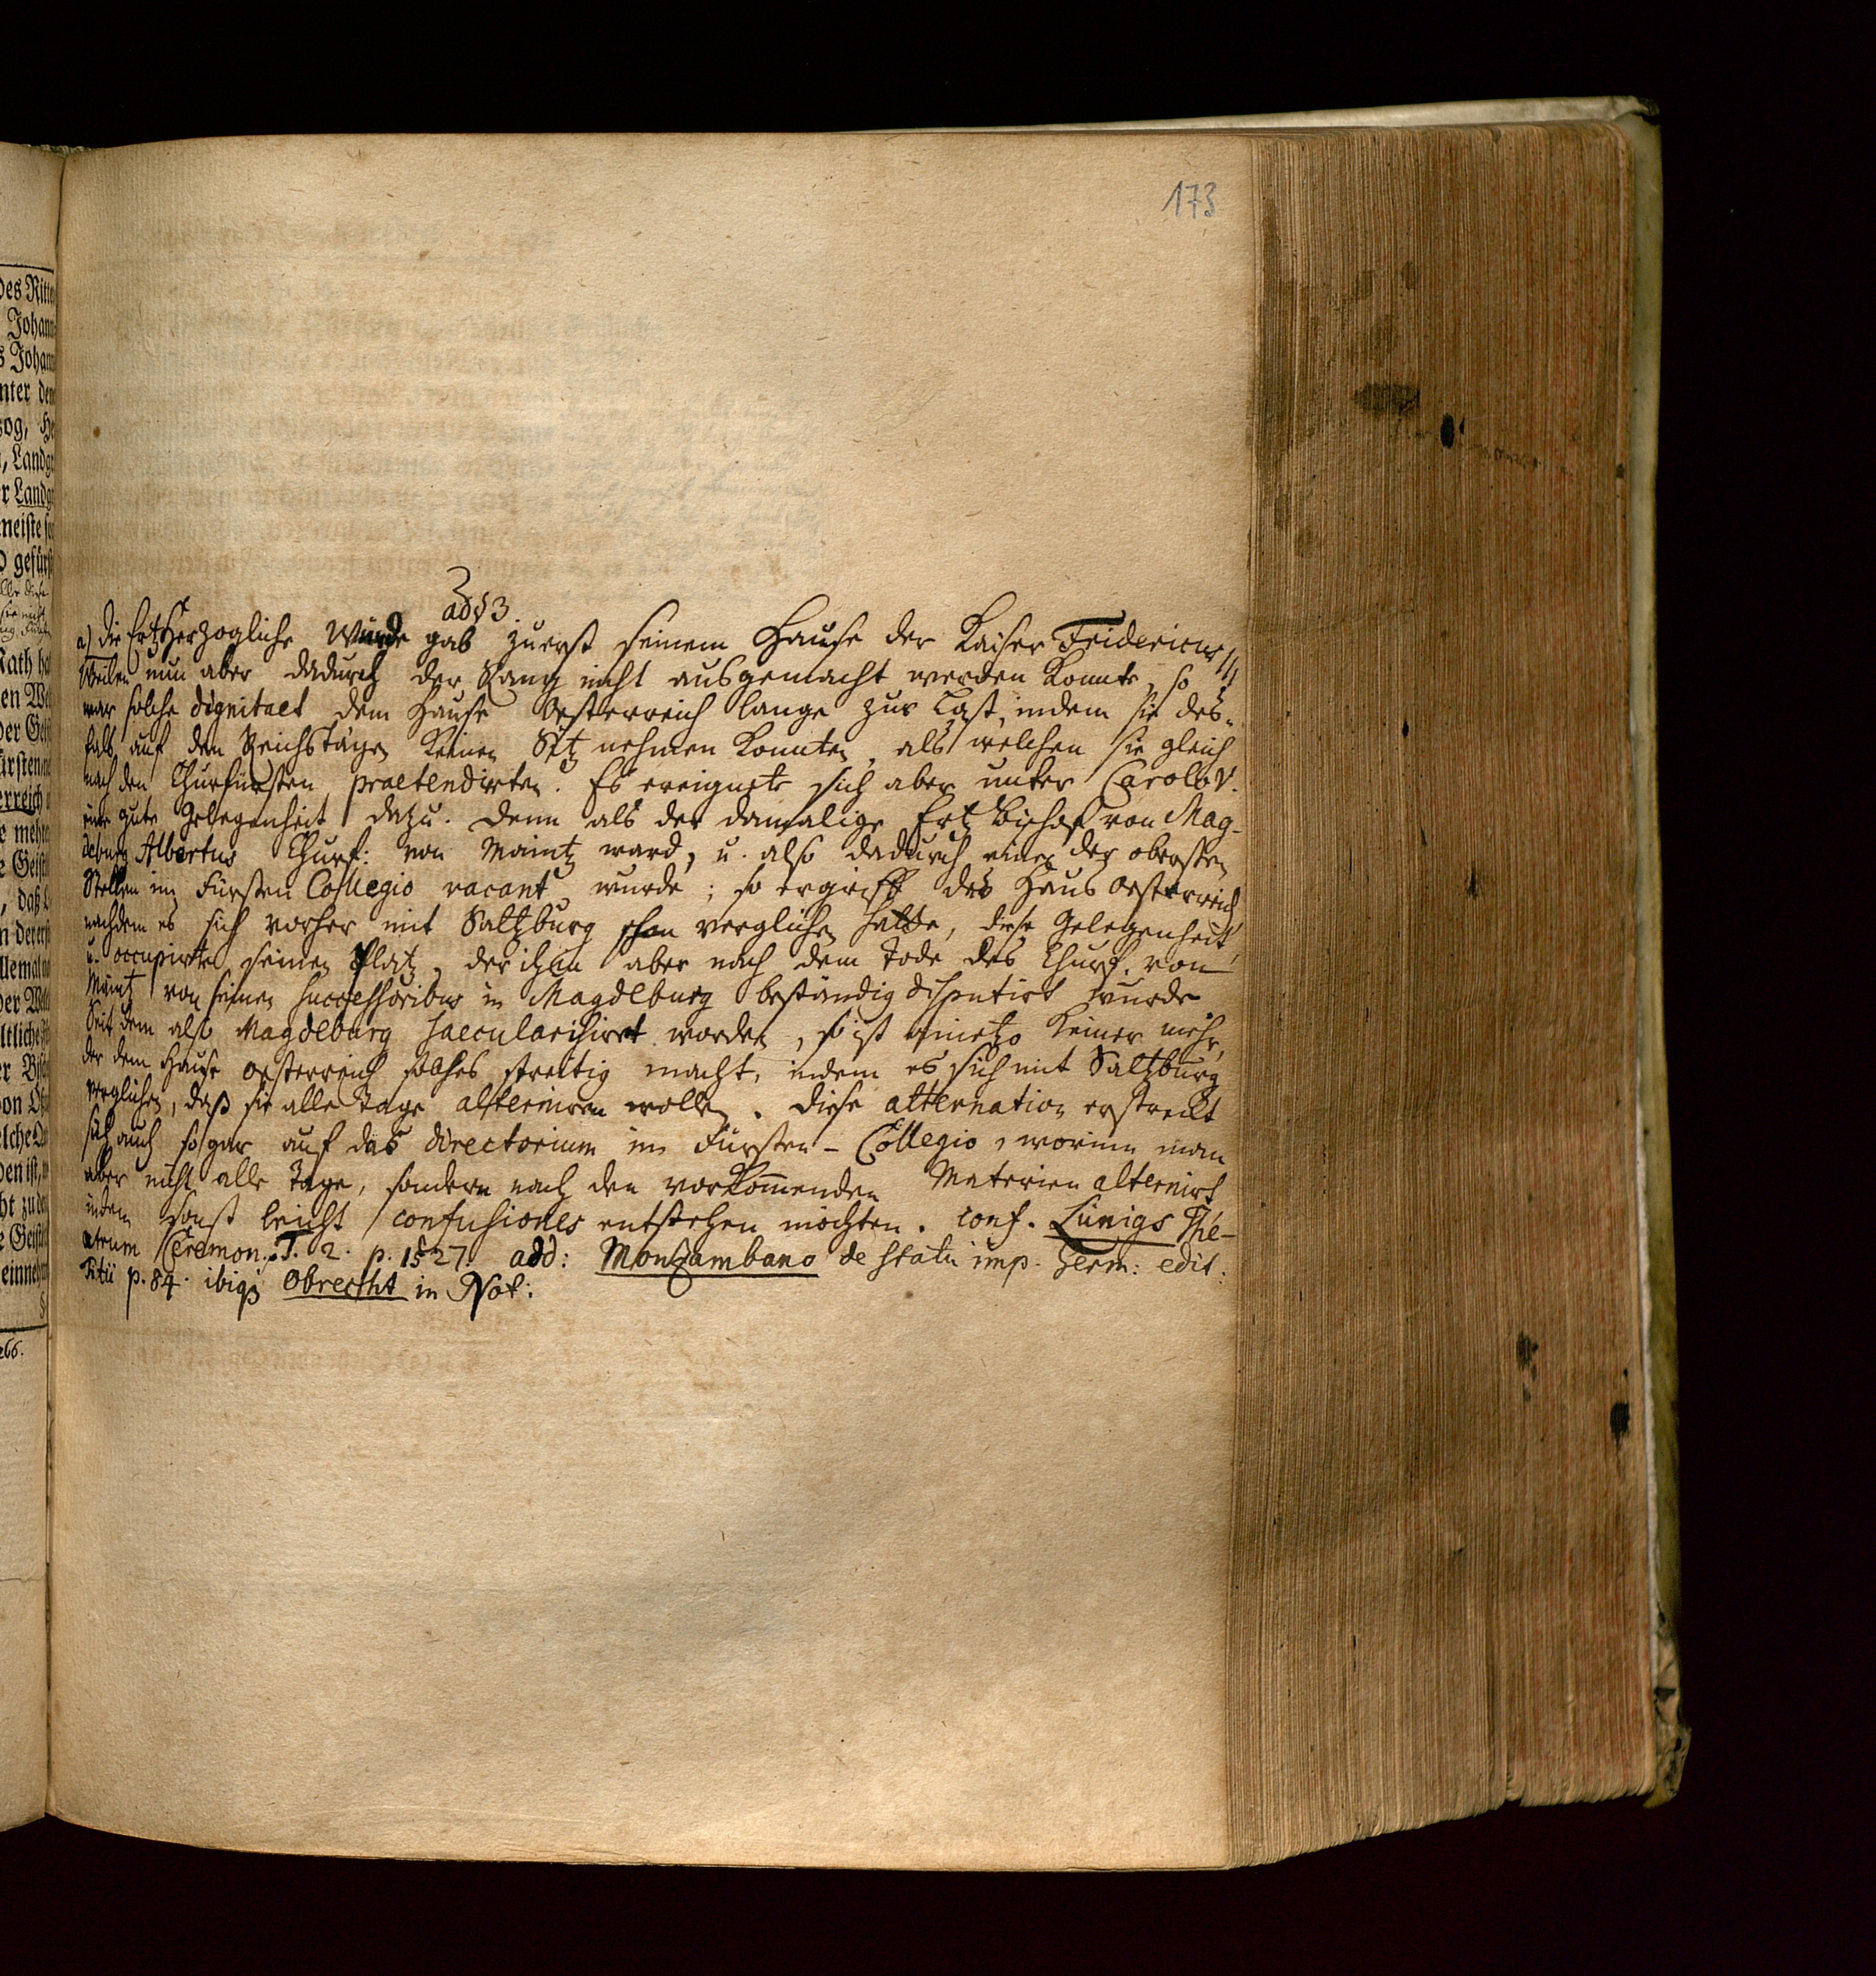 173
ad § 3.
a) Die ErtzHerzogliche Würde gab zuerst seinem Hause der Kaiser Fridericus III
Weilen nun aber dadurch der Rang nicht ausgemacht werden konnte, so
war solche dignitaet dem Hause Oesterreich lange zur Last, indem sie des-
fals auf den Reichstägen keinen Sitz nehmen konnten, als welchen sie gleich
nach den Churfürsten praetendirten. Es ereignete sich aber unter Carolo V.
eine gute Gelegenheit dazu. Denn als der damalige Ertz Bischof von Mag-
deburg Albertus Churf: von Maintz ward, u. also dadurch eine der obersten
Stellen im Fürsten Collegio vacant wurde; so ergriff das Haus Oesterreich
nachdem es sich vorher mit Saltzburg schon verglichen hatte, diese Gelegenheit
u. occupirte seinen Platz, der ihm aber nach dem Tode des Churf. von
Maintz von seinen Successoribus in Magdeburg beständig disputirt wurde
Seit dem also Magdeburg saecularisirt worden, so ist anietzo keiner mehr,
der dem Hause Oesterreich solches streitig macht, indem es sich mit Saltzburg
verglichen, daß sie alle Tage alterniren wollen. Diese alternation erstreckt
sich auch sogar auf das directorium im Fürsten-Collegio, worinn man
aber nicht alle Tage, sondern nach den vorkommenden Materien alternirt
indem sonst leicht confusiones entstehen möchten. conf. Lünigs The-
atrum Ceremon. T. 2. p. 1527. add: Monzambano de statu imp. Germ: edit:
Titii p. 84. ibiq Obrecht in Not:
des Ritte
Johann
s Johann
nter dem
zog, He
, Landg
r Landg
meiste
gefürst
Rath ha
en We
der Gei
ürsten
erreich
e mehr
e Geist
, daß
n derer
llemal
der We
ltliche
er Bis
von O
elche
den ist,
ht zu de
e Geist
einne
266.